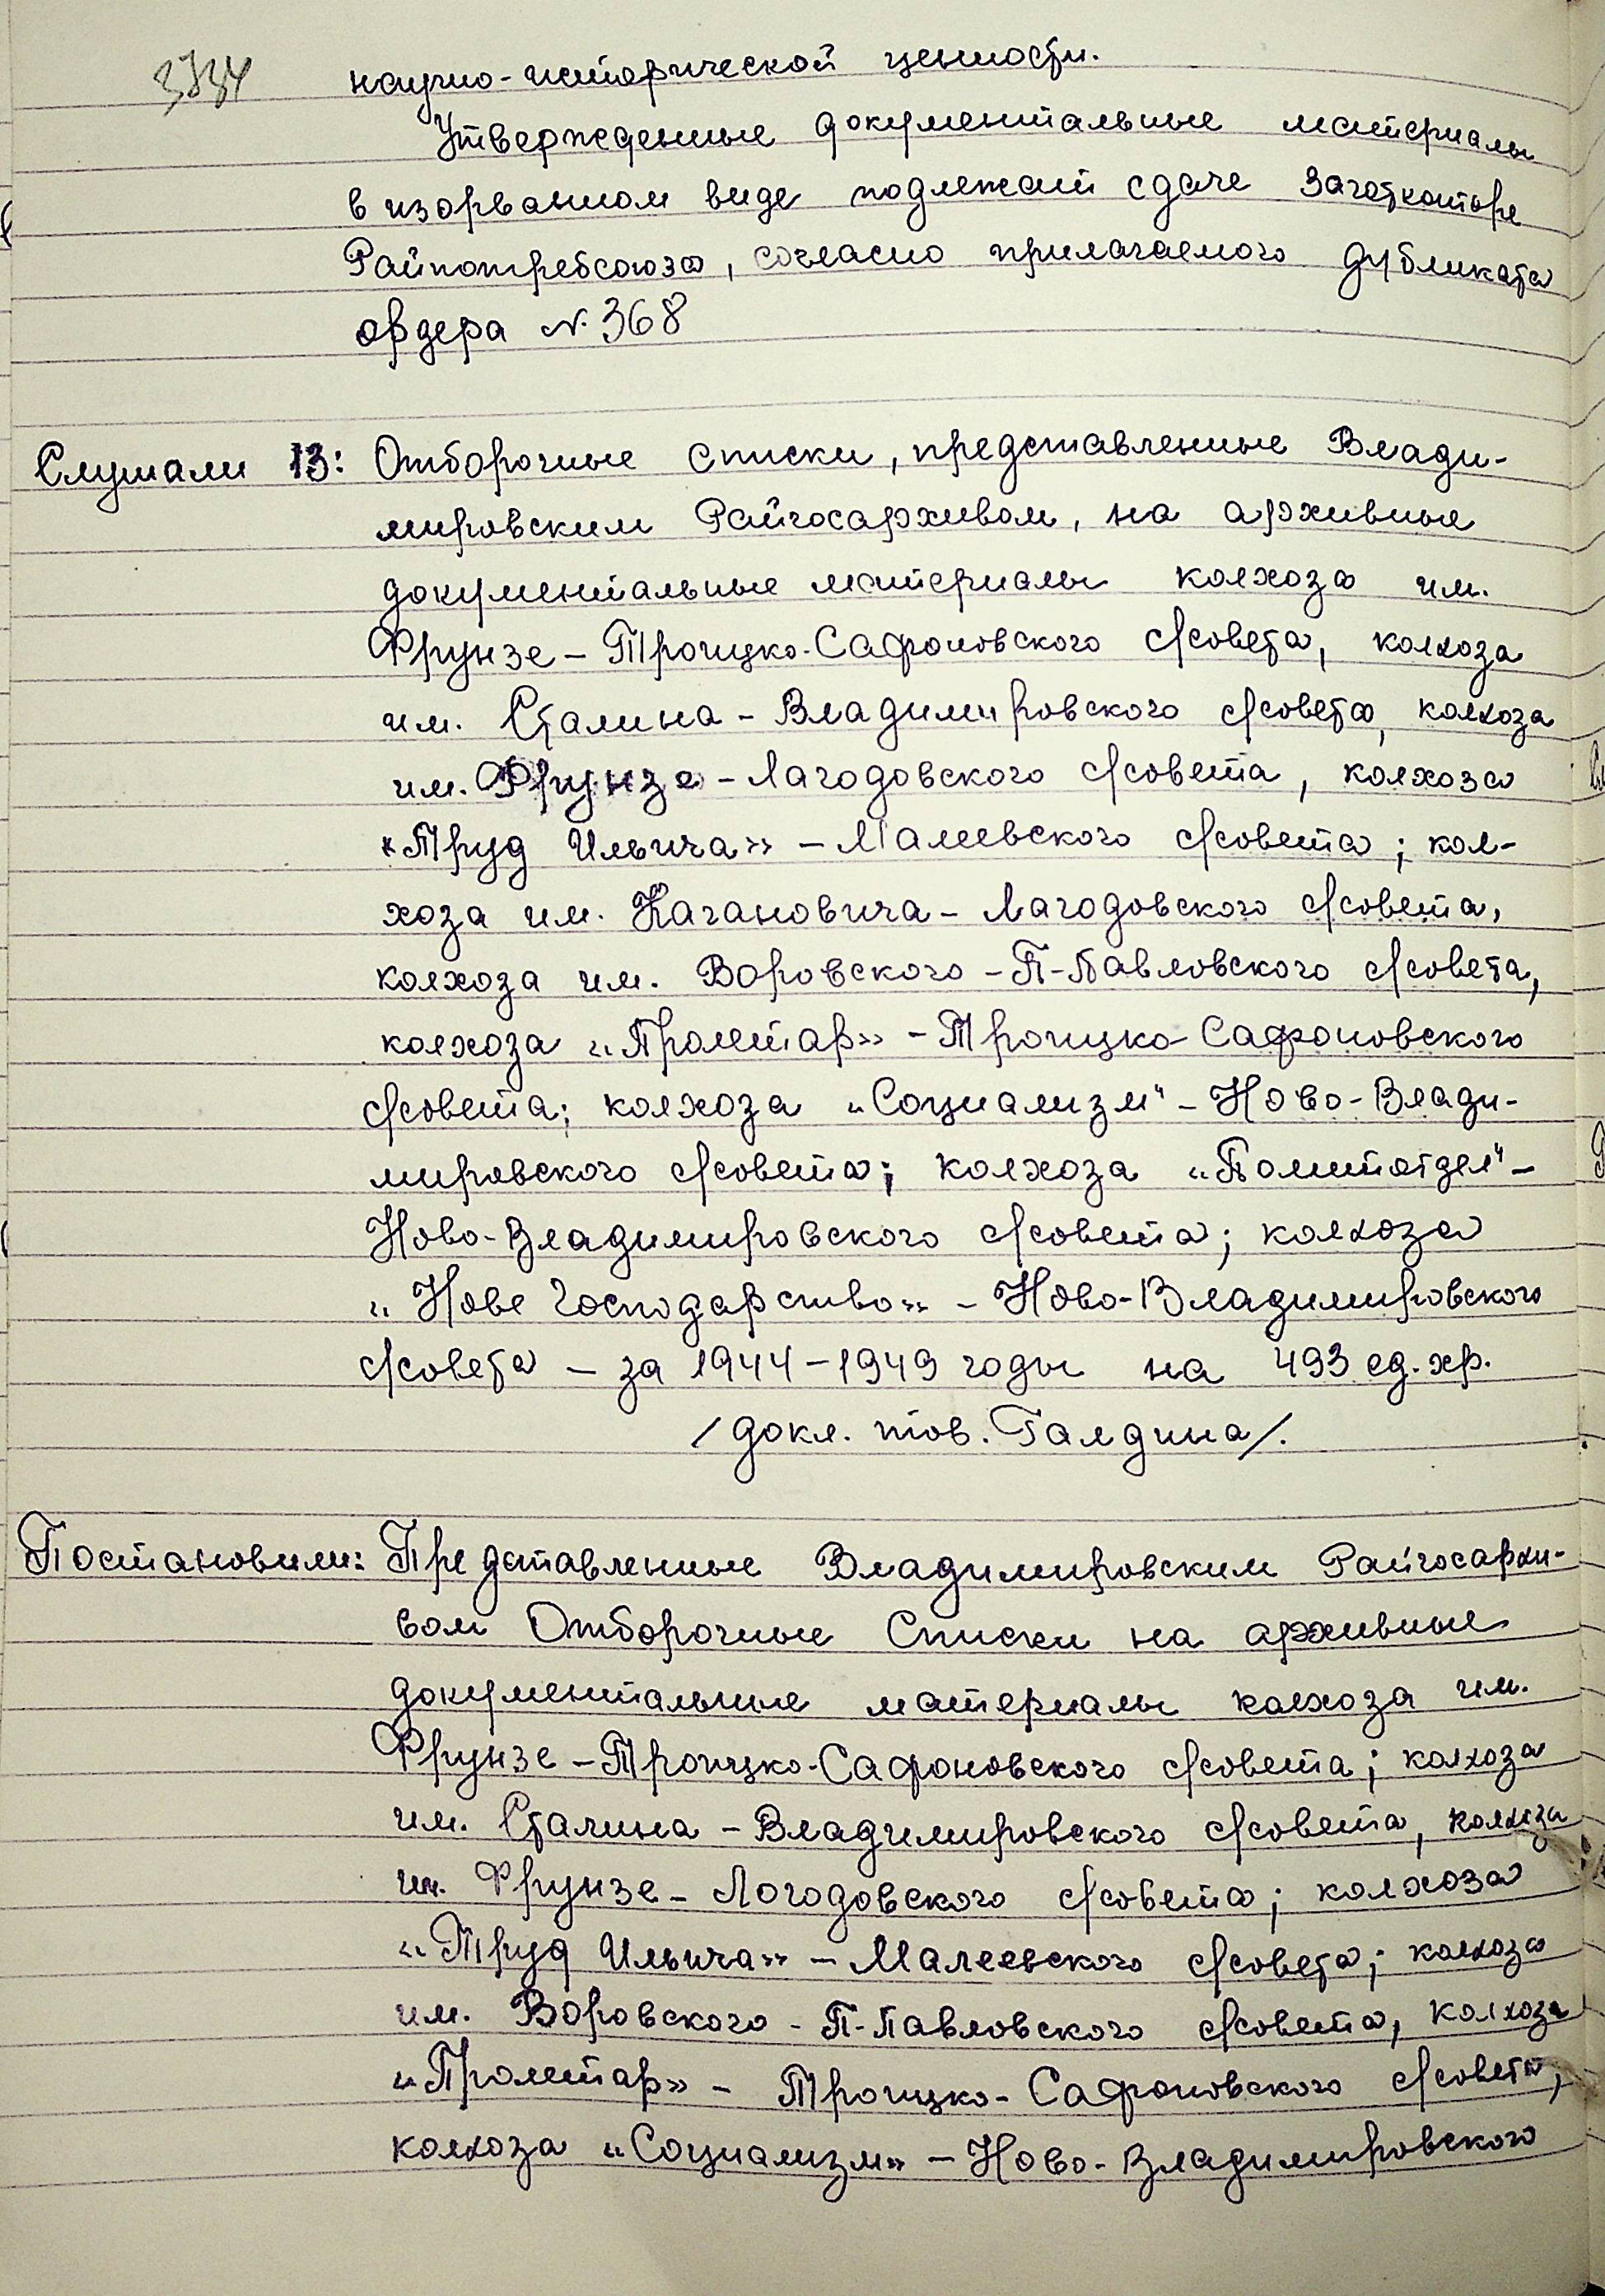 научно-исторической ценности.
Утвержденные документальные материалы
в изорванном виде подлежат сдаче Заготконторе
Райпотребсоюза, согласно прилагаемого дубликата
ордера №368
Слушали 13: Отборочные списки, представленные Влади-
мировским Райгосархивом, на архивные
документальные материалы колхоза им.
Фрунзе – Троицко-Сафоновского с/совета, колхоза
им. Сталина – Владимировского с/совета, колхоза
им. Фрунзе – Лагодовского с/совета, колхоза
"Труд Ильича" – Малеевского с/совета; кол-
хоза им. Кагановича – Лагодовского с/совета,
колхоза им. Воровского – П-Павловского с/совета,
колхоза "Пролетар" – Троицко-Сафоновского
с/совета; колхоза "Социализм" – Ново-Влади-
мировского с/совета; колхоза "Политотдел" –
Ново-Владимировского с/совета; колхоза
"Нове Господарство" – Ново-Владимировского
с/совета – за 1944–1949 годы на 493 ед. хр.
/докл. тов. Галдина/.
Постановили: Представленные Владимировским Райгосархи-
вом Отборочные Списки на архивные
документальные материалы колхоза им.
Фрунзе – Троицко-Сафоновского с/совета; колхоза
им. Сталина – Владимировского с/совета, колхоза
им. Фрунзе – Логодовского с/совета; колхоза
"Труд Ильича" – Малеевского с/совета; колхоза
им. Воровского – П-Павловского с/совета, колхоза
"Пролетар" – Троицко-Сафоновского с/совета,
колхоза "Социализм" – Ново-Владимировского